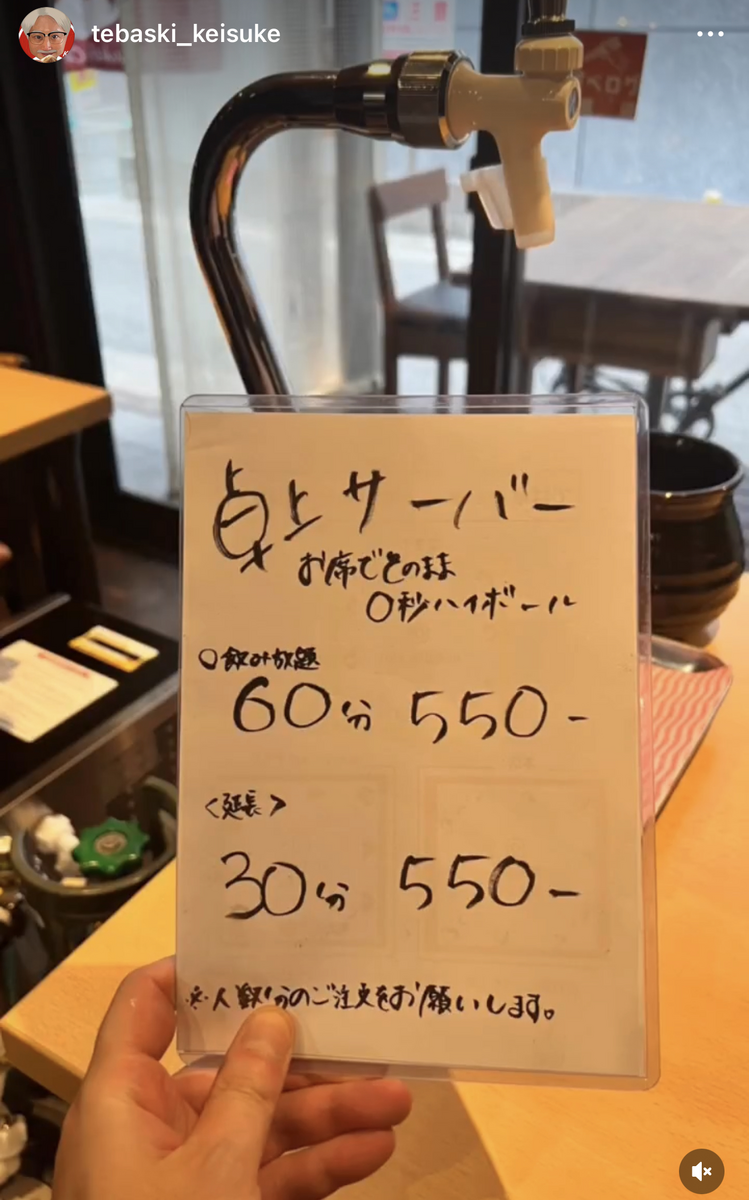 tebaski_keisuke
卓上サーバー
お席でそのまま
0秒ハイボール
○飲み放題
60分 550-
<延長>
30分 550-
※人数分のご注文をお願いします。